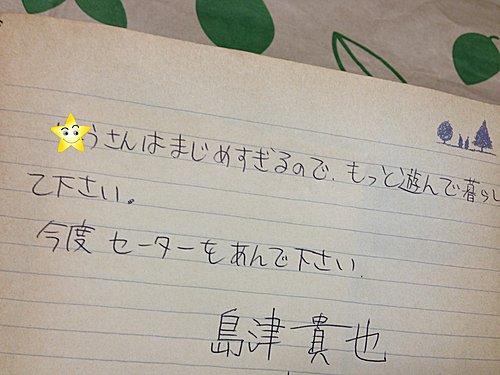 うさんはまじめすぎるので、もっと遊んで暮らし
て下さい。
今度 セーターをあんで下さい.
島津貴也